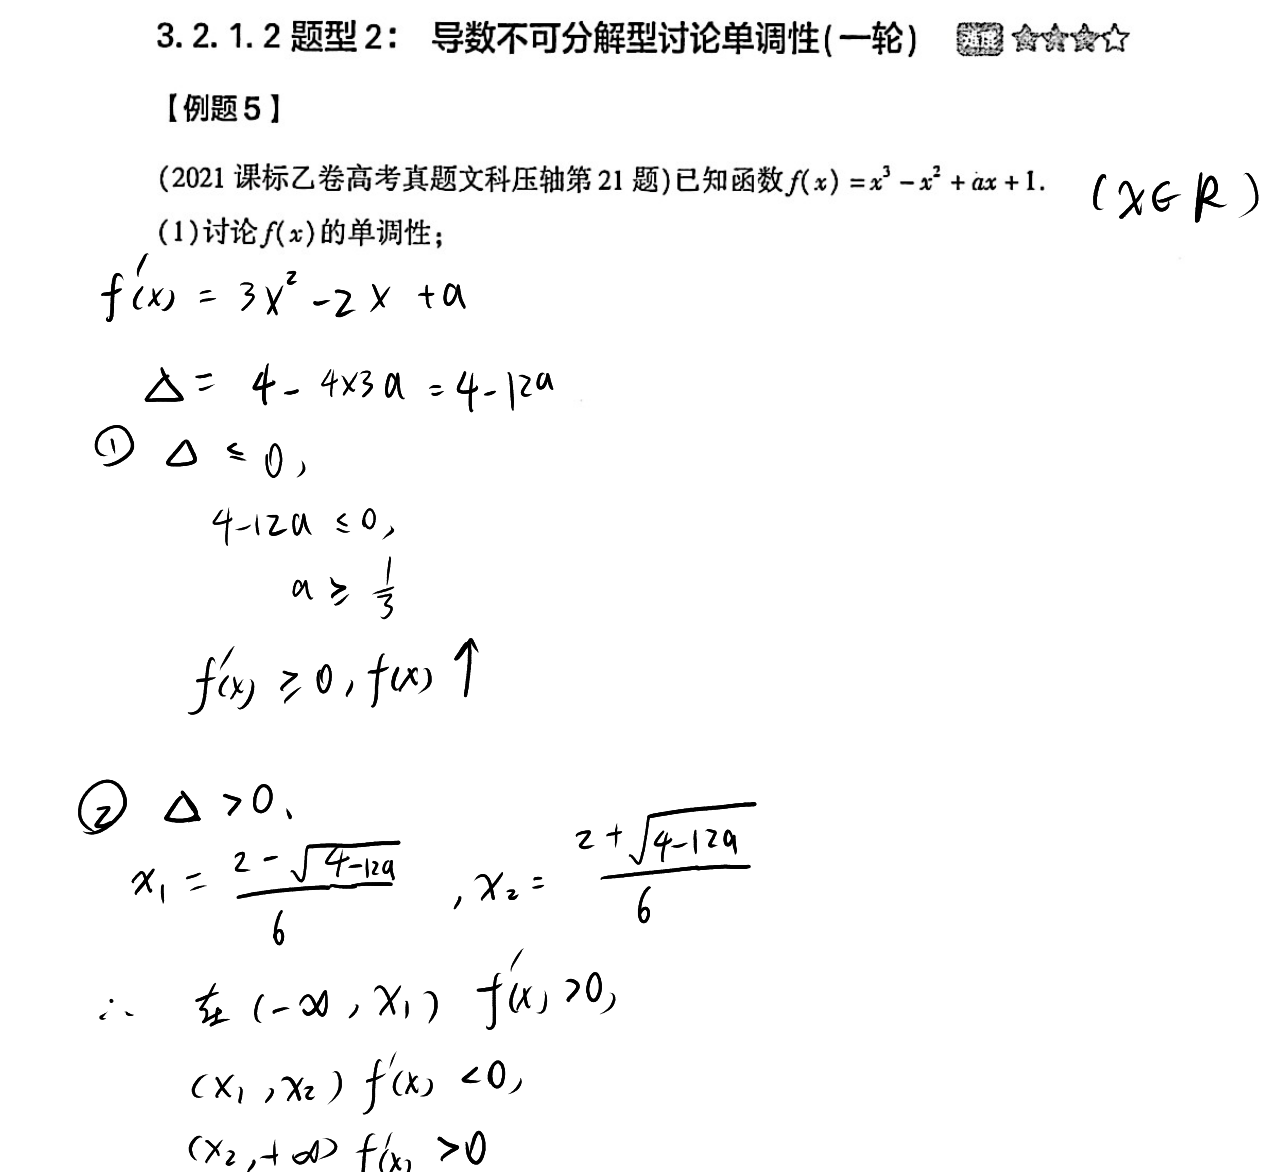 3.2.1.2 题型2： 导数不可分解型讨论单调性(一轮) 难度 ★★★☆
【例题5】
(2021 课标乙卷高考真题文科压轴第21题)已知函数f(x)=x³-x²+ax+1. (x∈R)
(1)讨论f(x)的单调性；
f'(x) = 3x²-2x+a
Δ = 4-4×3a = 4-12a
① Δ ≤ 0,
4-12a ≤ 0,
a ≥ 1/3
f'(x) ≥ 0, f(x) ↑
② Δ > 0、
x₁ = (2-√(4-12a))/6 , x₂ = (2+√(4-12a))/6
∴ 在 (-∞, x₁) f'(x) >0,
(x₁, x₂) f'(x) <0,
(x₂, +∞) f'(x) >0